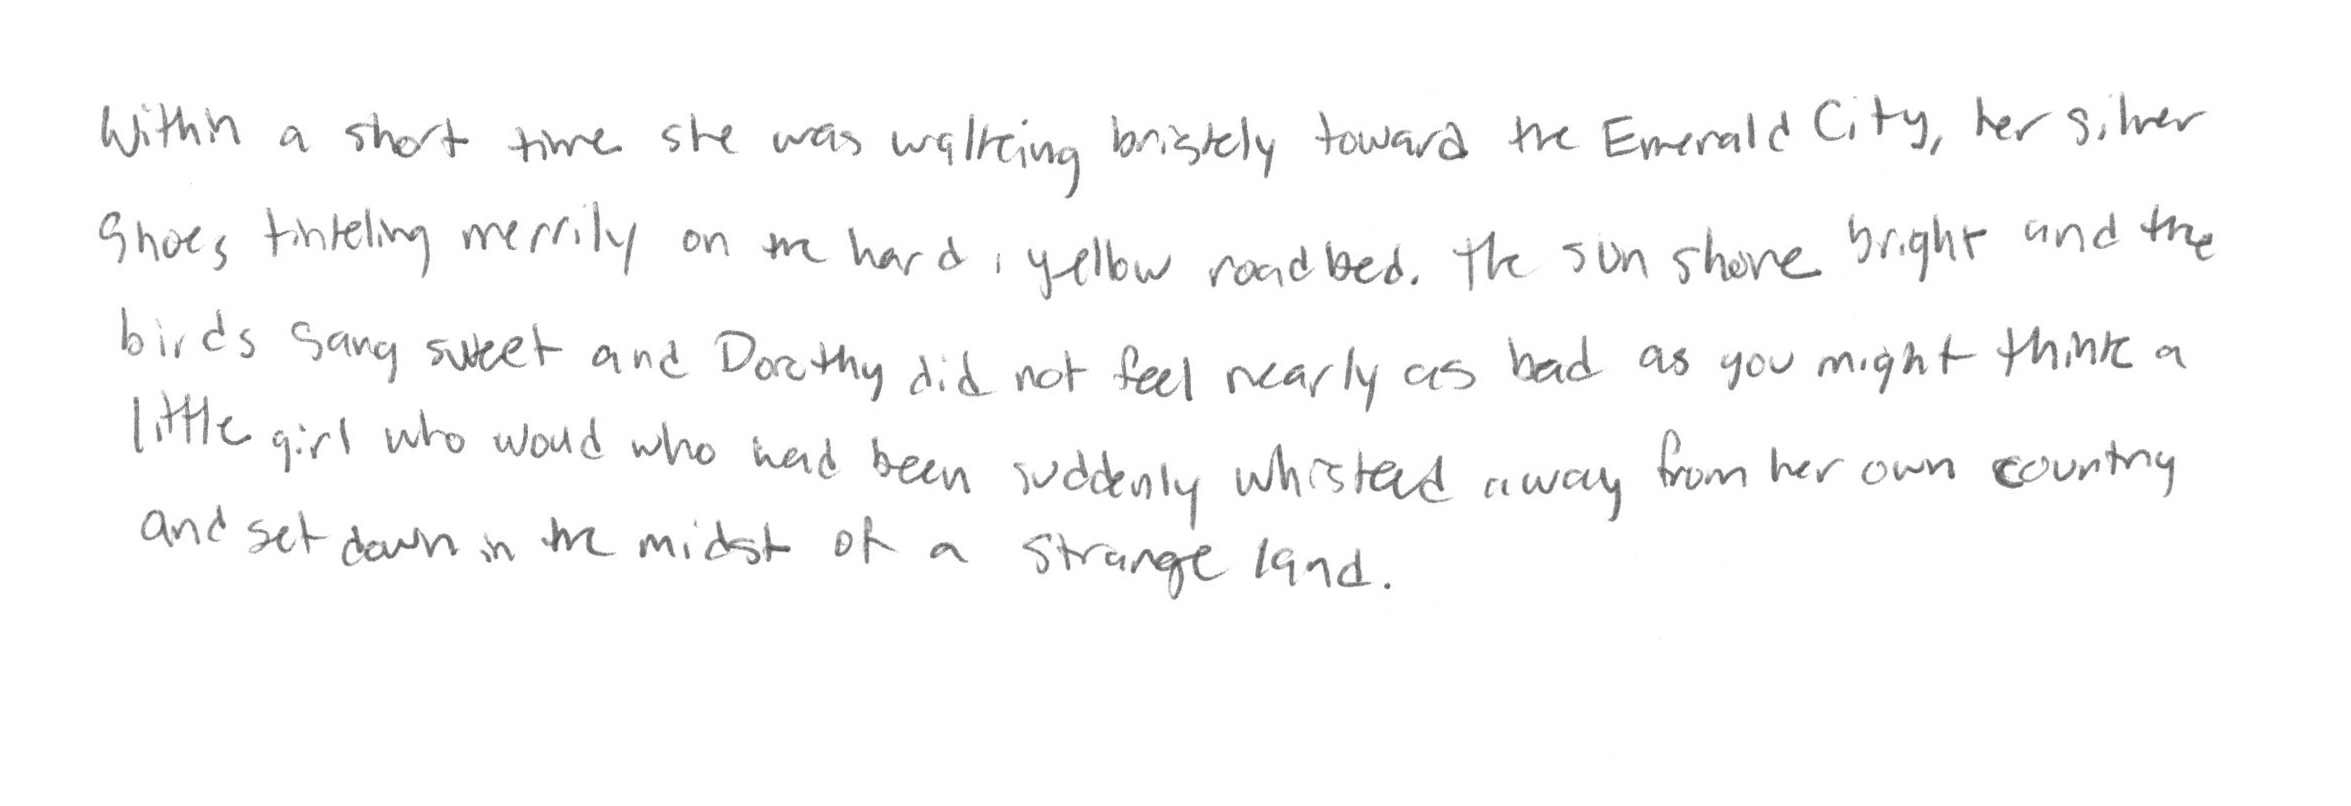 Within a short time she was walking briskly toward the Emerald City, her silver
shoes tinkeling merrily on the hard, yellow roadbed. The sun shone bright and the
birds sang sweet and Dorothy did not feel nearly as bad as you might think a
little girl who would who had been suddenly whisked away from her own country
and set down in the midst of a strange land.